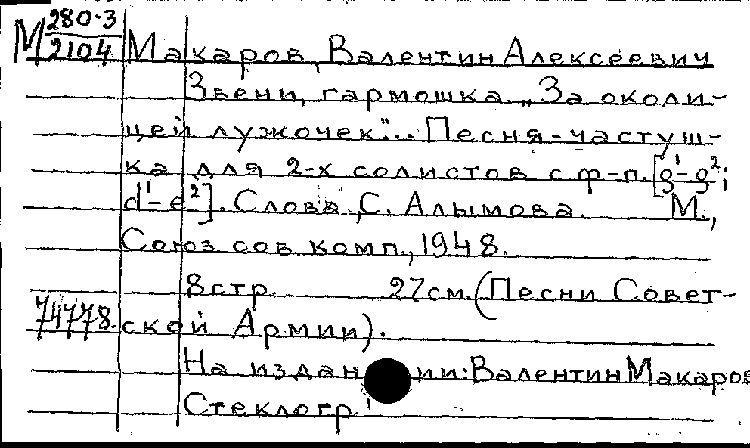 М 280-3
2104 Макаров, Валентин Алексеевич
Звени, гармошка. „За околи-
цей лужочек"... Песня-частуш-
ка для 2-х солистов с ф-п. [g¹-g²;
d¹-e²]. Слова С. Алымова. М.,
Союз сов. комп., 1948.
8 стр. 27 см. (Песни Совет-
74778. ской Армии).
На издании: Валентин Макаров
Стеклогр.